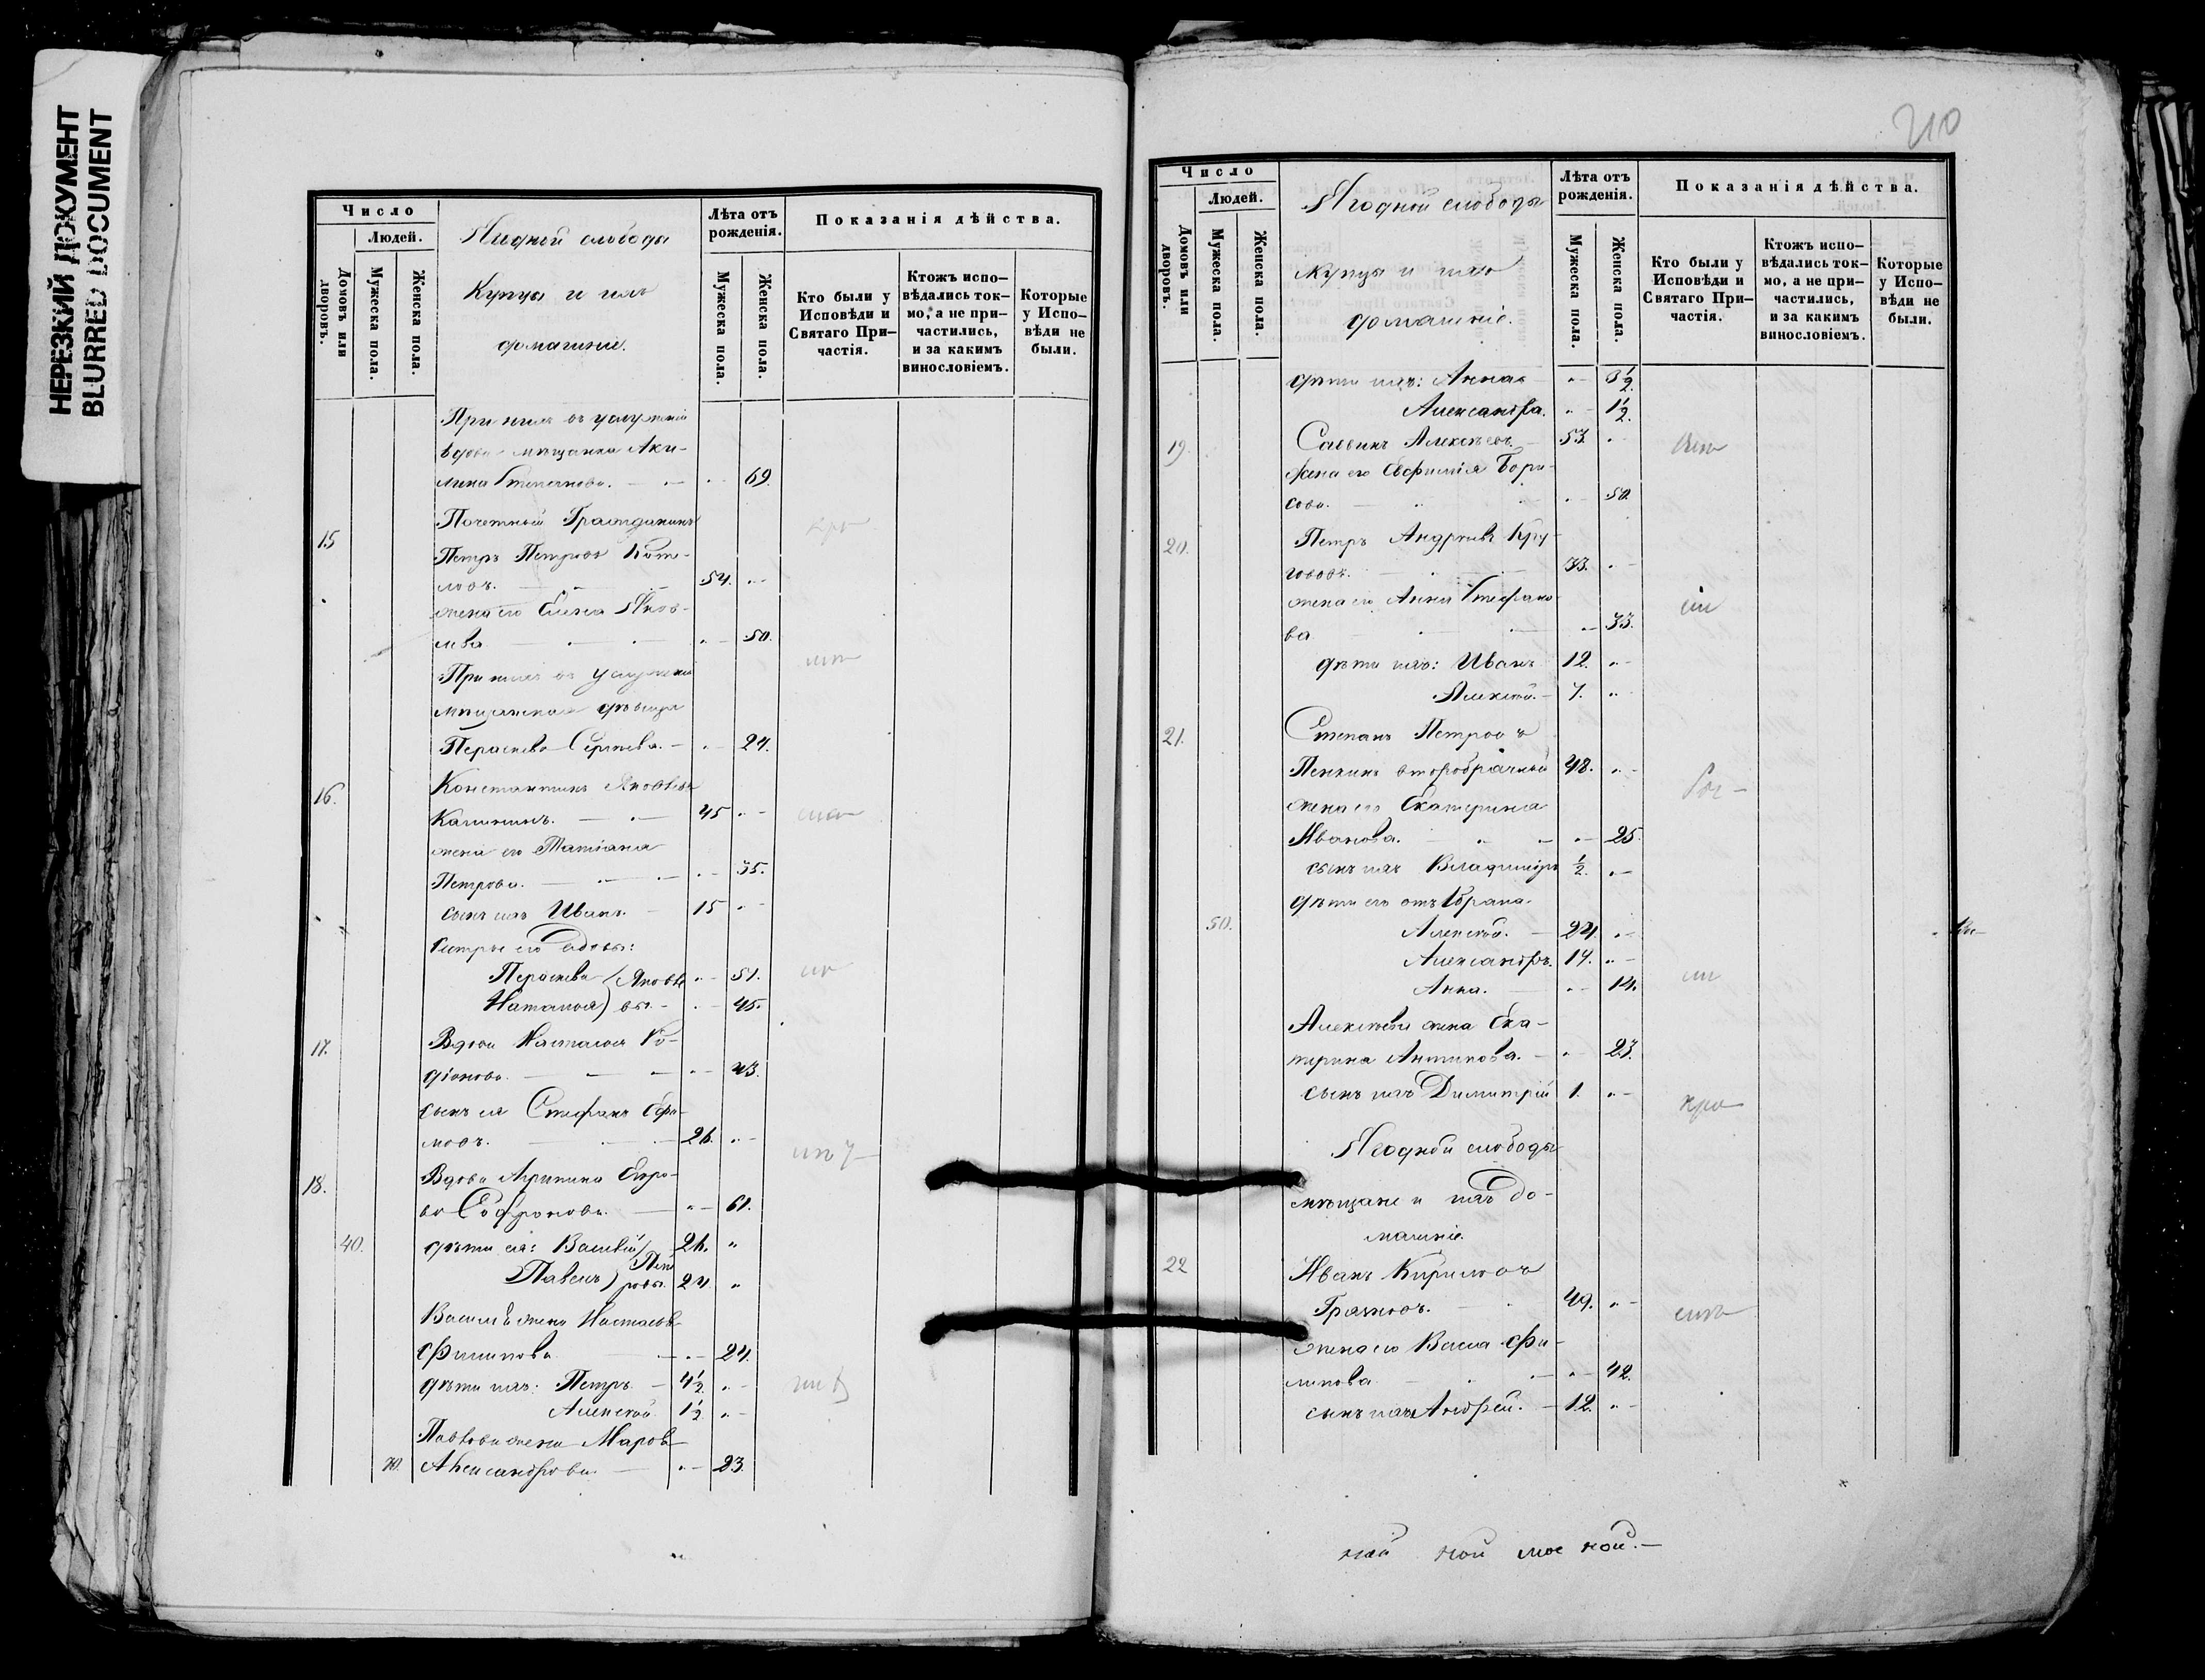 НЕРЕЗКИЙ ДОКУМЕНТ
BLURRED DOCUMENT
Число
Людей.
Домовъ или дворовъ.
Мужеска пола.
Женска пола.
Ягодной слободы
Купцы и ихъ
домашніе.
Лѣта отъ рожденія.
Мужеска пола.
Женска пола.
Показанія дѣйства.
Кто были у Исповѣди и Святаго При-частія.
Ктожъ испо-вѣдались ток-мо, а не при-частились, и за какимъ винословіемъ.
Которые у Испо-вѣди не были.
При нихъ въ услуженіи
вдова мѣщанка Аку-
лина Степанова. 69.
15 Почетный Гражданинъ
Петръ Петровъ Коте-
ловъ. 54.
жена его Елена Яков-
лева 50.
При нихъ въ услуженіи
мѣщанская дѣвица
Параскева Сергѣева. 24.
16. Константинъ Яковлевъ
Калининъ. 45
жена его Татіана
Петрова. 35.
сынъ ихъ Иванъ. 15
сестры его вдовы:
Параскева (Яковле 51.
Наталья) вы. 45.
17. Вдова Наталья Ро-
діонова. 43.
сынъ ея Стефанъ Ефи-
мовъ. 26.
18. Вдова Агрипина Евро-
ва Софронова. 61.
40. дѣти ея: Василій) 26.
Павелъ) Пет
ровы. 24.
Василья жена Настасья
Филипова 24.
дѣти ихъ: Петръ 4 1/2.
Алексѣй 1 1/2.
Павлова жена Марѳа
Александрова. 23.
210
Число
Людей.
Домовъ или дворовъ.
Мужеска пола.
Женска пола.
Ягодной слободы
Купцы и ихъ
домашніе.
Лѣта отъ рожденія.
Мужеска пола.
Женска пола.
Показанія дѣйства.
Кто были у Исповѣди и Святаго При-частія.
Ктожъ испо-вѣдались ток-мо, а не при-частились, и за какимъ винословіемъ.
Которые у Испо-вѣди не были.
дѣти ихъ: Анна 3 1/2.
Александра. 1 1/2.
19. Саввинъ Алексѣевъ 53.
жена его Евфимія Бори-
сова. 50.
20. Петръ Андреевъ Кру-
гововъ. 33.
жена его Анна Стефано-
ва 33.
дѣти ихъ: Иванъ 12.
Алексѣй. 7.
21. Степанъ Петровъ
Пенкинъ второбрачный 48.
жена его Екатерина
Иванова. 25.
сынъ ихъ Владиміръ 1/2.
дѣти его отъ 1 брака.
50. Алексѣй. 24.
Александръ. 17.
Анна. 14.
Алексѣева жена Ека-
терина Антипова. 23.
сынъ ихъ Димитрій 1.
Ягодной слободы
мѣщане и ихъ до-
машніе.
22 Иванъ Кириловъ
Грязновъ. 49.
жена его Васса Фи-
липова 42.
сынъ ихъ Андрей. 12.